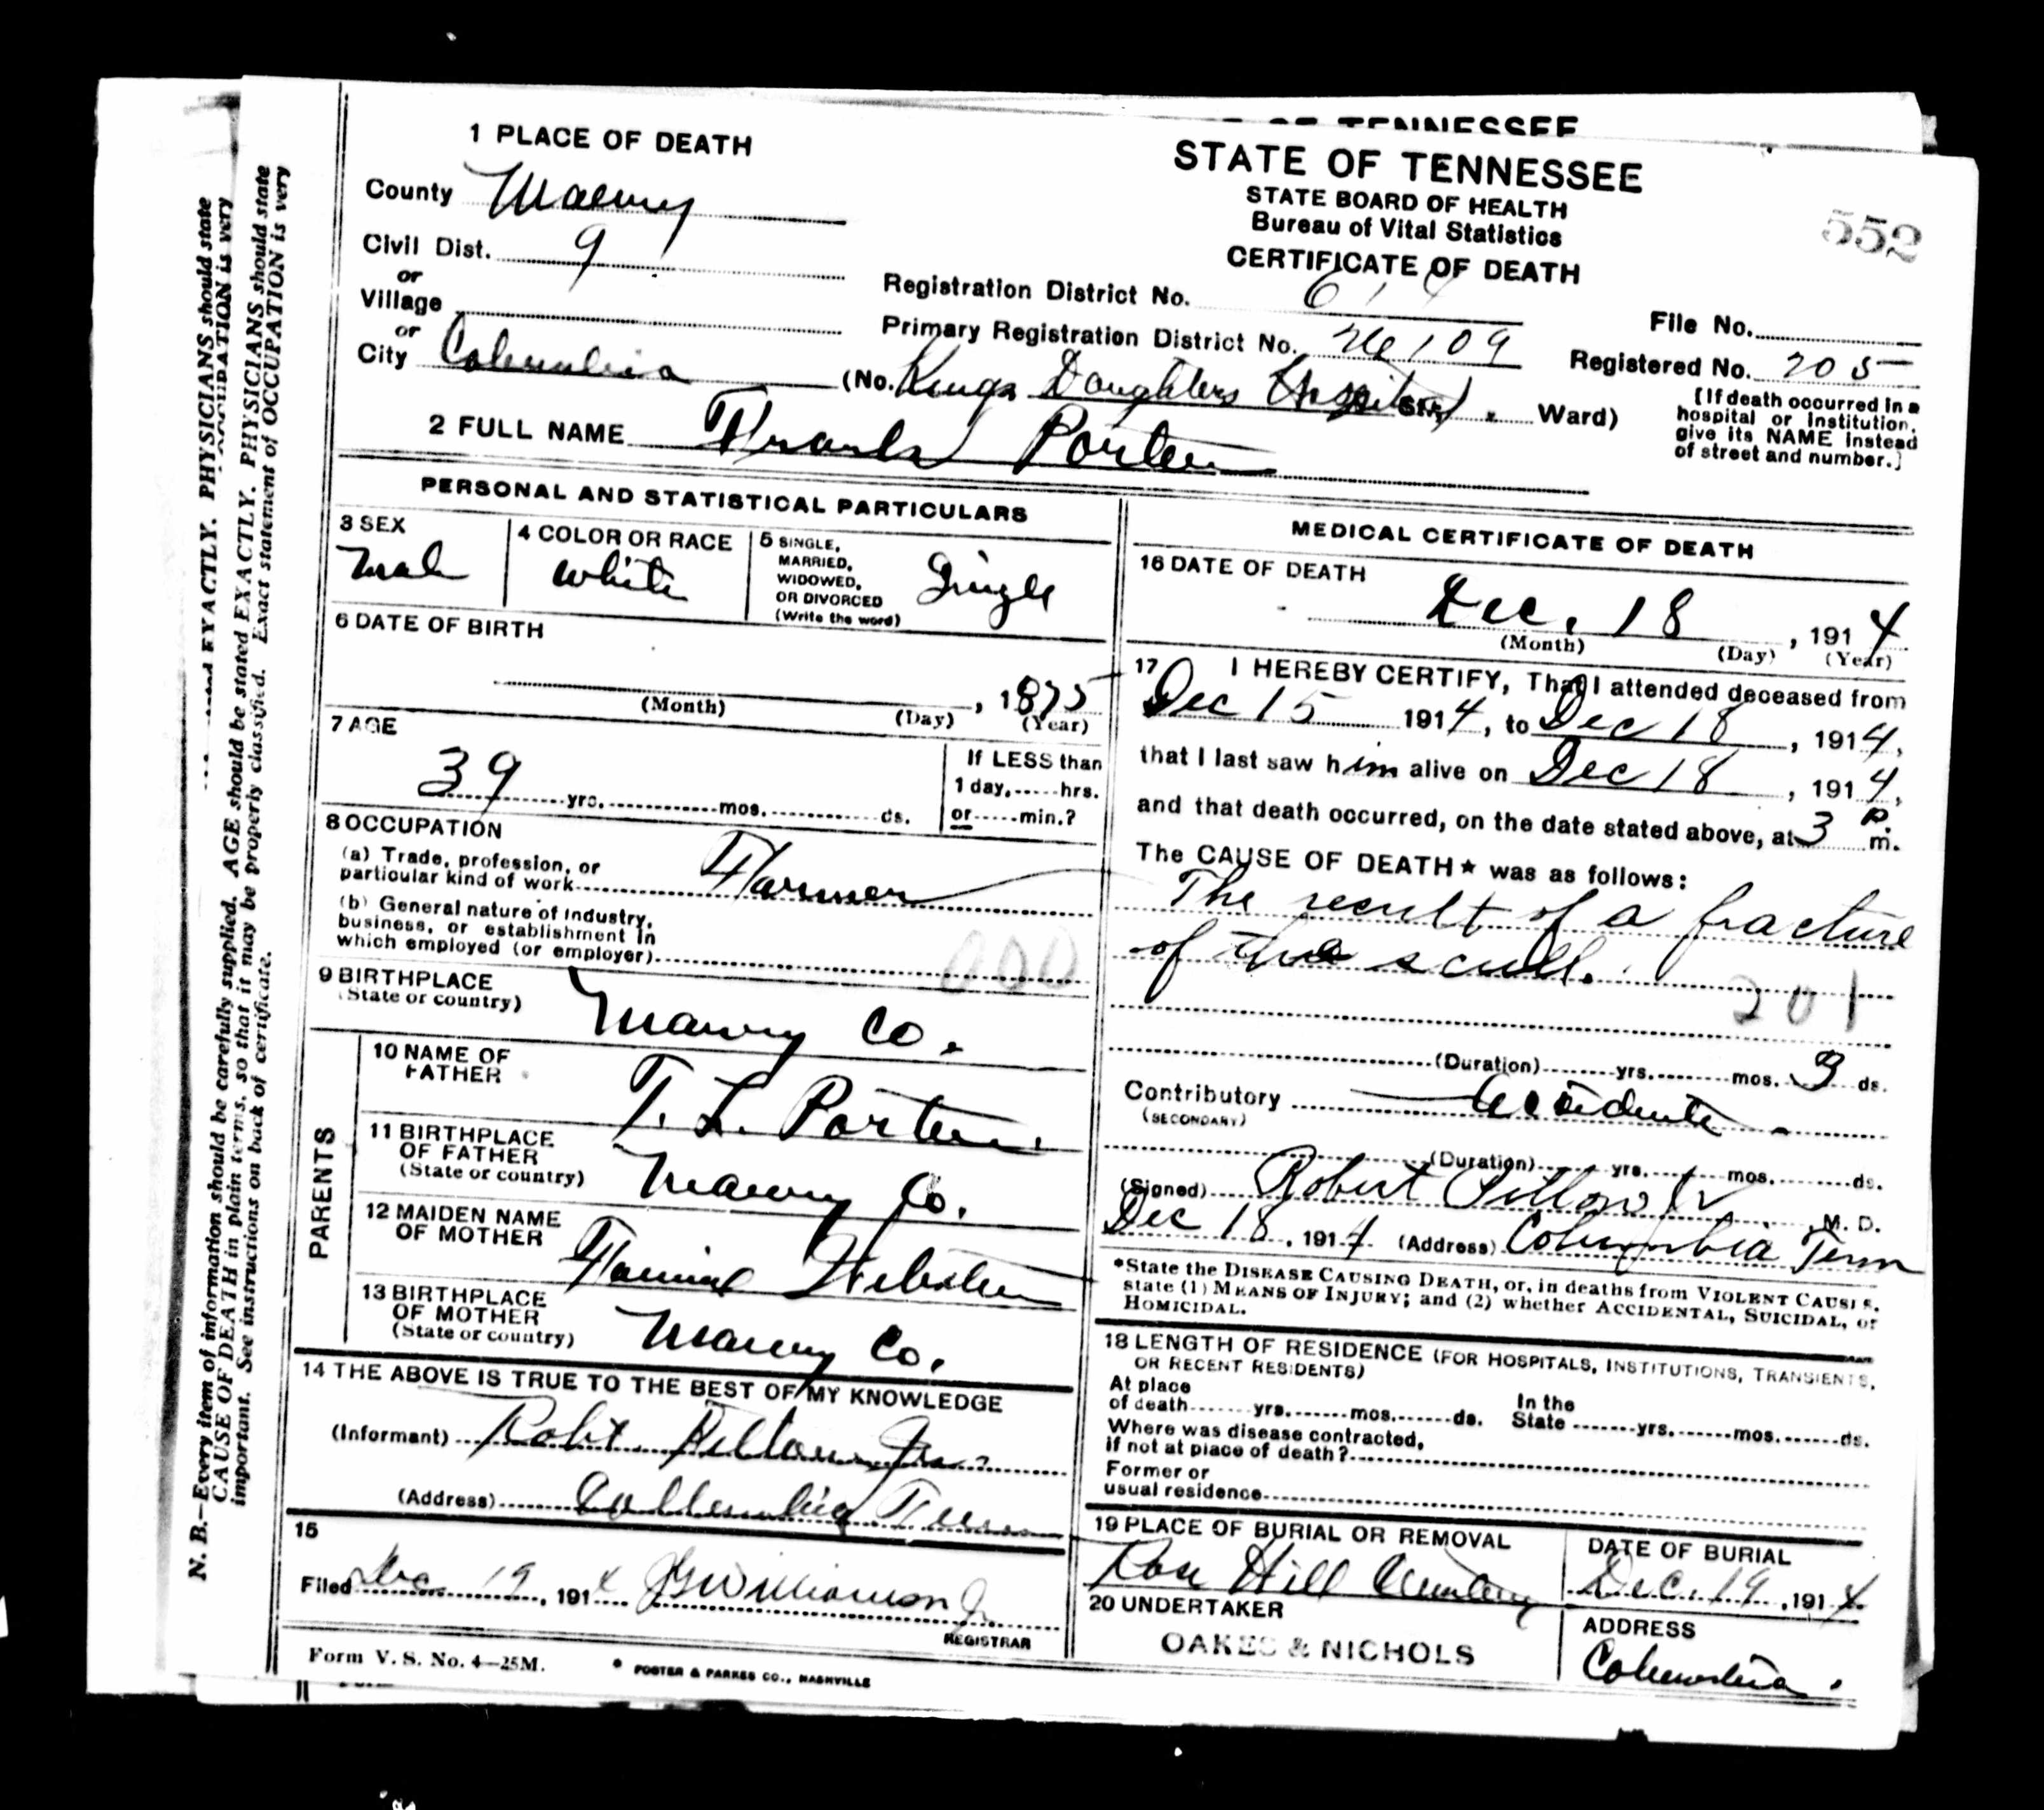 OF TENNESSEE
STATE OF TENNESSEE
STATE BOARD OF HEALTH
Bureau of Vital Statistics
CERTIFICATE OF DEATH
552
1 PLACE OF DEATH
County Maury
Civil Dist. 9
or
Village
or
City Columbia (No. Kings Daughters Hospital St., Ward)
Registration District No.
Primary Registration District No. 109
File No.
Registered No. 205
[If death occurred in a
hospital or institution,
give its NAME instead
of street and number.]
2 FULL NAME Frank Porter
PERSONAL AND STATISTICAL PARTICULARS
3 SEX
Male
4 COLOR OR RACE
White
5 SINGLE,
MARRIED,
WIDOWED,
OR DIVORCED
(Write the word)
Single
6 DATE OF BIRTH
, 1875
(Month) (Day) (Year)
7 AGE
39 yrs. mos. ds.
If LESS than
1 day, hrs.
or min.?
8 OCCUPATION
(a) Trade, profession, or
particular kind of work Farmer
(b) General nature of industry,
business, or establishment in
which employed (or employer)
000
9 BIRTHPLACE
(State or country)
Maury Co.
PARENTS
10 NAME OF
FATHER
T. L. Porter.
11 BIRTHPLACE
OF FATHER
(State or country)
Maury Co.
12 MAIDEN NAME
OF MOTHER
Webster
13 BIRTHPLACE
OF MOTHER
(State or country)
Maury Co.
14 THE ABOVE IS TRUE TO THE BEST OF MY KNOWLEDGE
(Informant) Robt. Pillow Jr.
(Address) Collumbia Tenn
15
Filed Dec 19, 1914 Williamson Jr.
REGISTRAR
Form V. S. No. 4—25M.
FOSTER & PARKES CO., NASHVILLE
MEDICAL CERTIFICATE OF DEATH
16 DATE OF DEATH
Dec. 18, 1914
(Month) (Day) (Year)
17 I HEREBY CERTIFY, That I attended deceased from
Dec 15 1914, to Dec 18, 1914,
that I last saw him alive on Dec 18, 1914,
and that death occurred, on the date stated above, at 3 P. m.
The CAUSE OF DEATH* was as follows:
The result of a fracture
of the scull.
201
(Duration) yrs. mos. 3 ds.
Contributory
(SECONDARY)
(Duration) yrs. mos. ds.
(Signed) Robert Pillow Jr M. D.
Dec 18, 1914 (Address) Columbia Tenn
*State the DISEASE CAUSING DEATH, or, in deaths from VIOLENT CAUSES,
state (1) MEANS OF INJURY; and (2) whether ACCIDENTAL, SUICIDAL, or
HOMICIDAL.
18 LENGTH OF RESIDENCE (FOR HOSPITALS, INSTITUTIONS, TRANSIENTS,
OR RECENT RESIDENTS)
At place
of death yrs. mos. ds.
In the
State yrs. mos. ds.
Where was disease contracted,
if not at place of death?
Former or
usual residence
19 PLACE OF BURIAL OR REMOVAL
Rose Hill Cemetery
DATE OF BURIAL
Dec. 19, 1914
20 UNDERTAKER
OAKES & NICHOLS
ADDRESS
Columbia.
N. B.—Every item of information should be carefully supplied. AGE should be stated EXACTLY. PHYSICIANS should state
CAUSE OF DEATH in plain terms, so that it may be properly classified. Exact statement of OCCUPATION is very
important. See instructions on back of certificate.
EXACTLY. PHYSICIANS should state
OCCUPATION is very